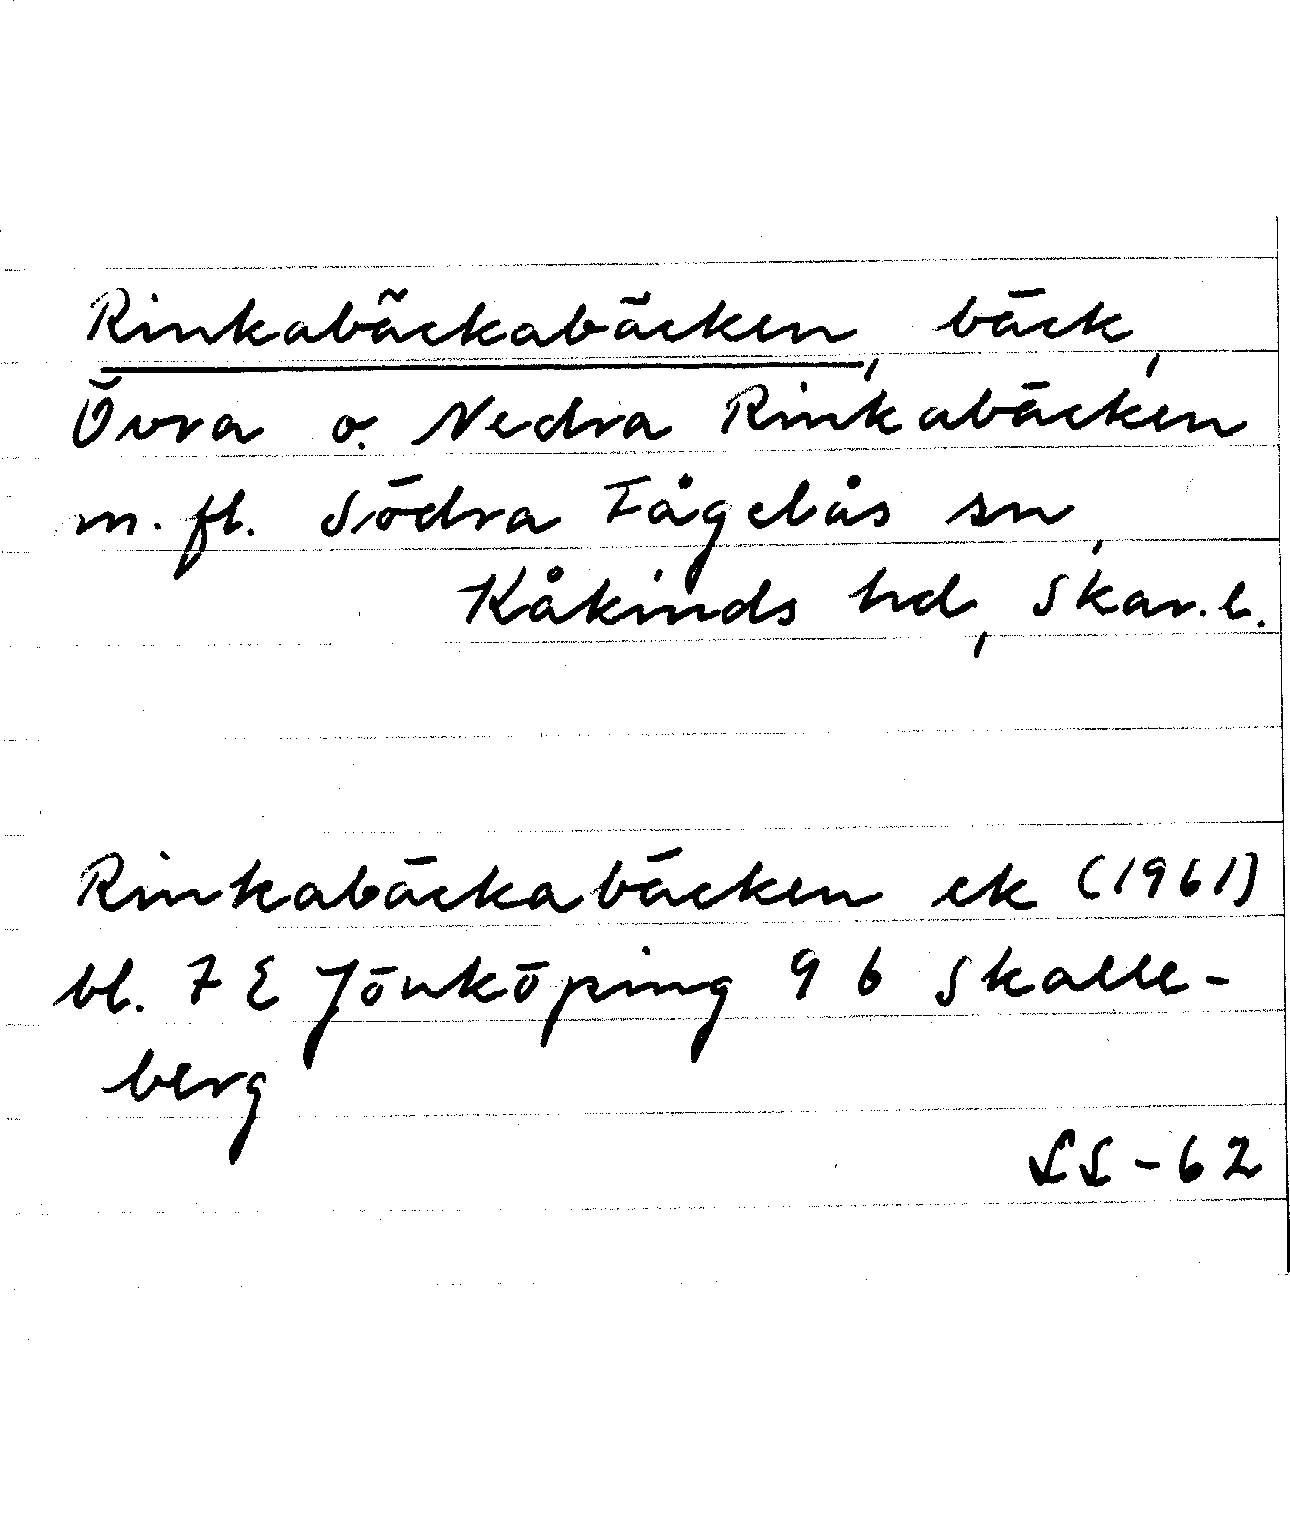 Rinkabäckabäcken, bäck,
Övra o. Nedra Rinkabäcken
m. fl. Södra Fågelås sn,
Kåkinds hd, Skar. l.
Rinkabäckabäcken ek (1961)
bl. 7 E Jönköping 9 b Skalle-
berg
LL - 62